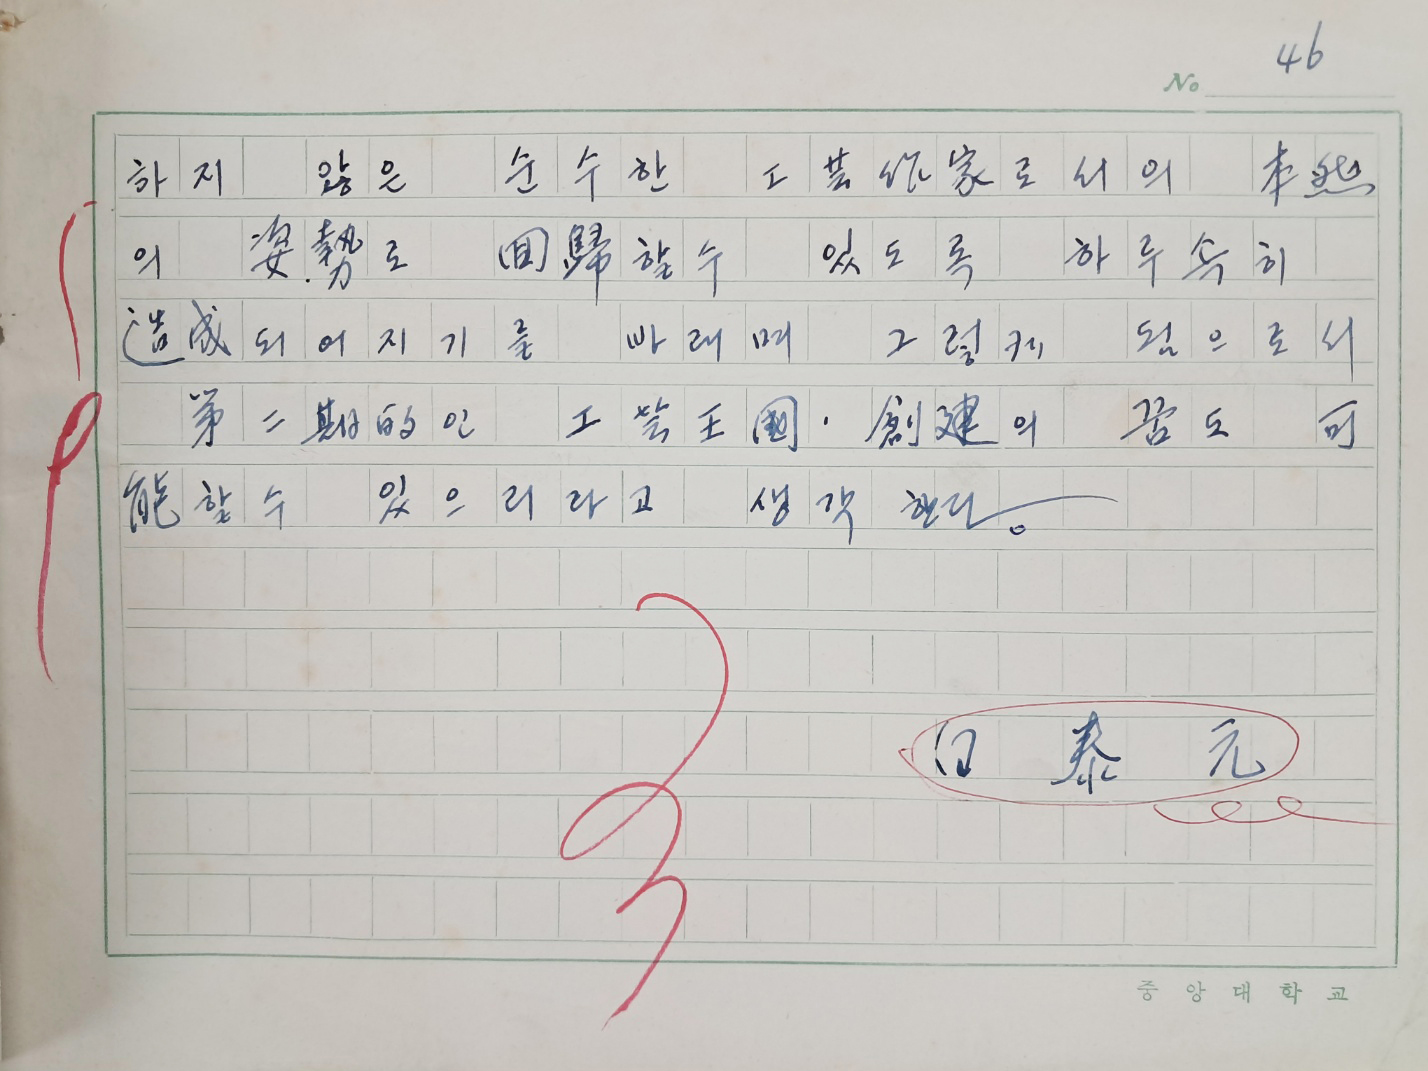 No 46
하지 않은 순수한 工芸作家로서의 本然
의 姿勢로 回歸할수 있도록 하루속히
造成되어지기를 바래며 그렇케 됨으로서
第二期的인 工芸王國·創建의 꿈도 可
能할수 있으리라고 생각한다。
白泰元
중앙대학교